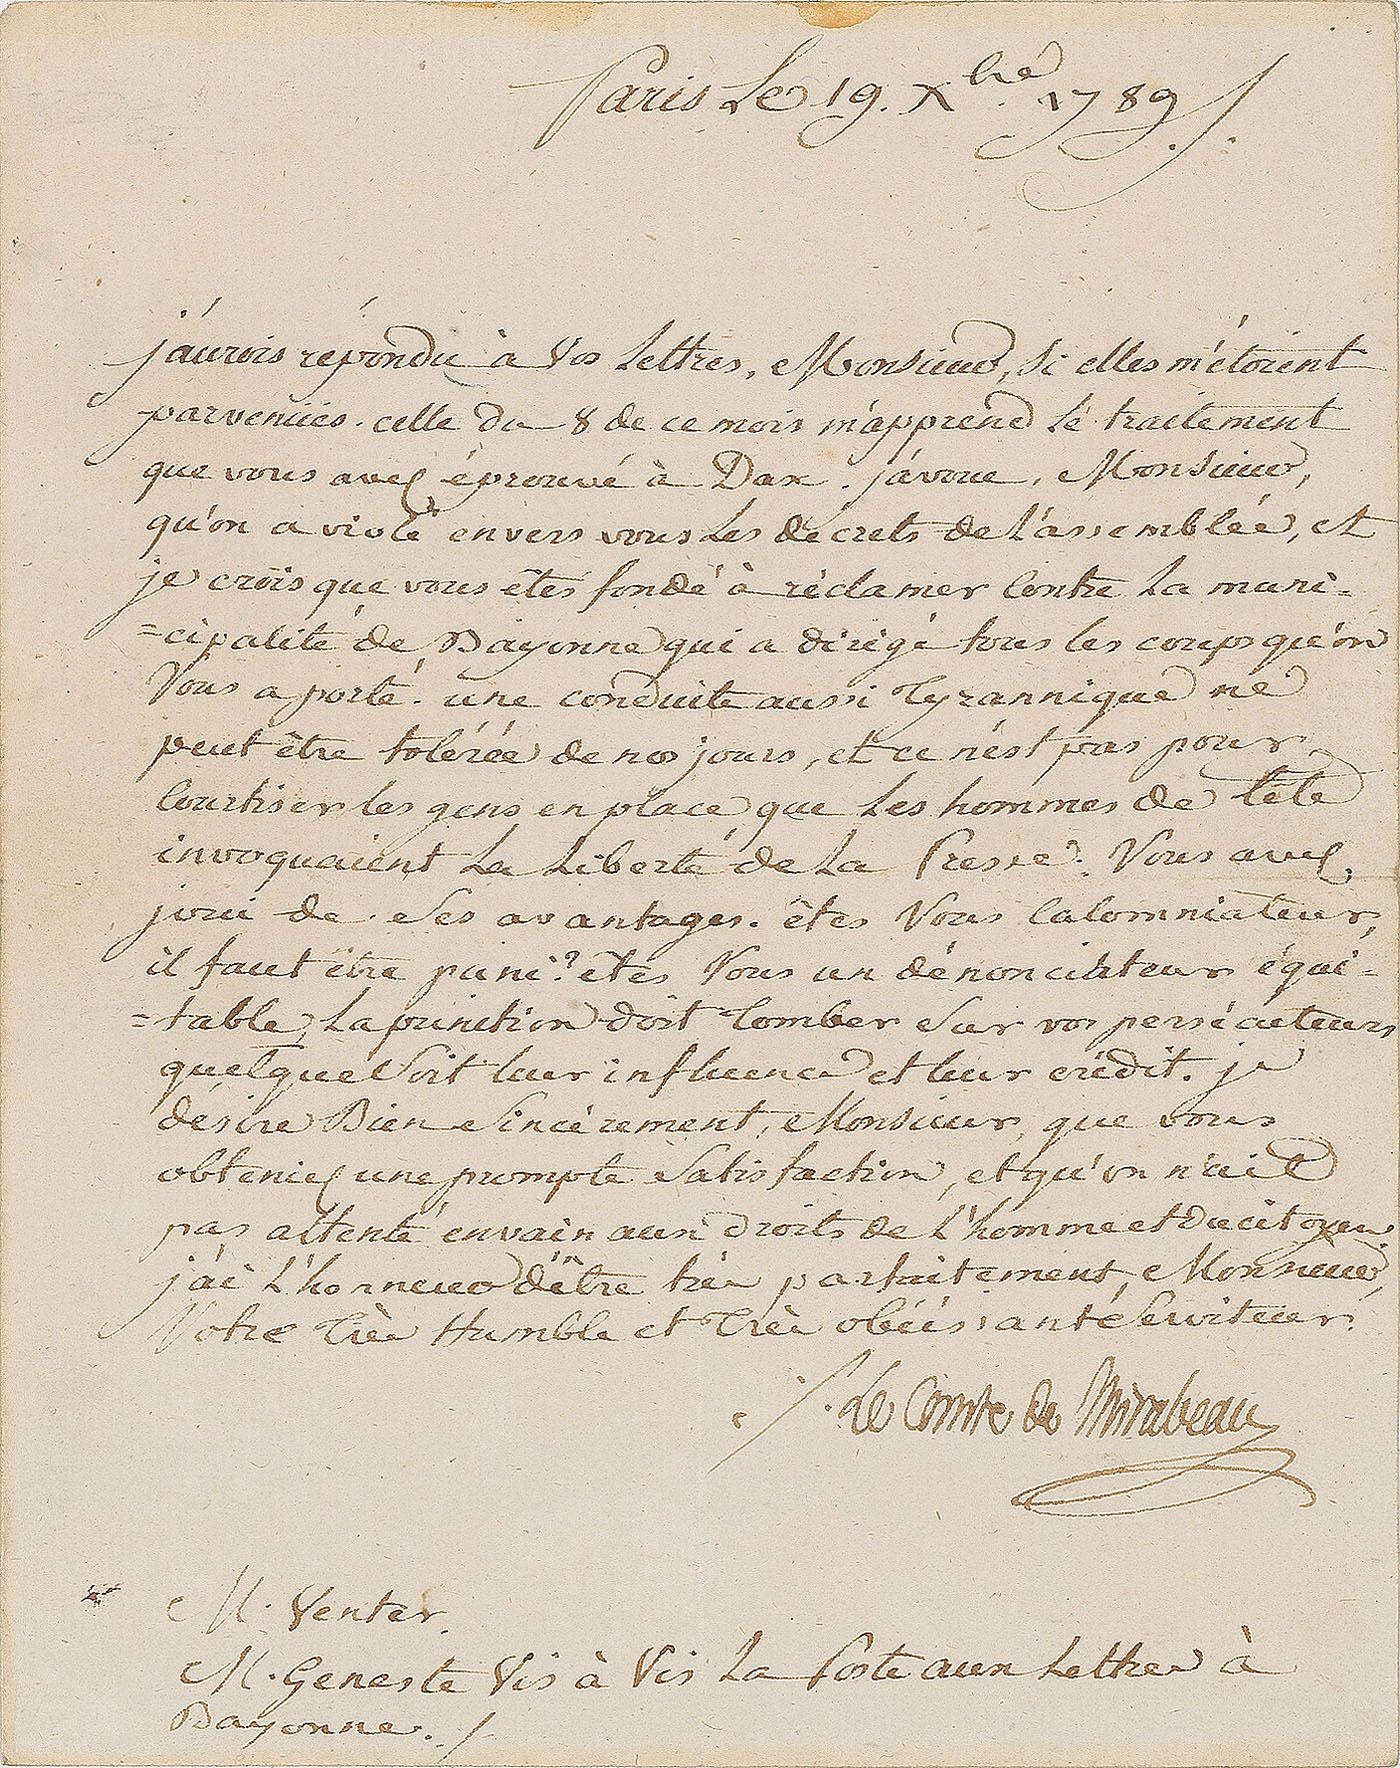 Paris Le 19. Xbre. 1789 /.
j'aurois répondu à Vos Lettres, Monsieur, Si elles m'étoient
parvenües. celle du 8 de ce mois m'apprend Le traitement
que vous avez éprouvé à Dax. j'avoue, Monsieur,
qu'on a violé envers vous Les décrets de L'assemblée, et
je crois que vous êtes fondé à réclamer Contre La muni-
=cipalité de Bayonne qui a dirigé tous les coups qu'on
Vous a porté. une conduite aussi Tyrannique ne
peut être tolérée de nos jours, et ce n'est pas pour
Courtiser les gens en place que Les hommes de Tête
invoquaient La Liberté de La Presse. Vous avez
joui de Ses avantages. êtes Vous Calomniateur,
il faut être puni? êtes Vous un dénonciateur équi-
=table, La punition doit Tomber Sur vos persécuteurs
quelque Soit leur influence et leur crédit. je
désire Bien Sincèrement, Monsieur, que vous
obteniez une prompte Satisfaction, et qu'on n'ait
pas attenté envain aux droits de L'homme et du citoyen.
j'ai L'honneur d'être très parfaitement, Monsieur,
Votre Très Humble et Très obéissant Serviteur.
/. Le Comte de Mirabeau
M. Venter.
M. Geneste Vis à Vis La Poste aux Lettres à
Bayonne. /